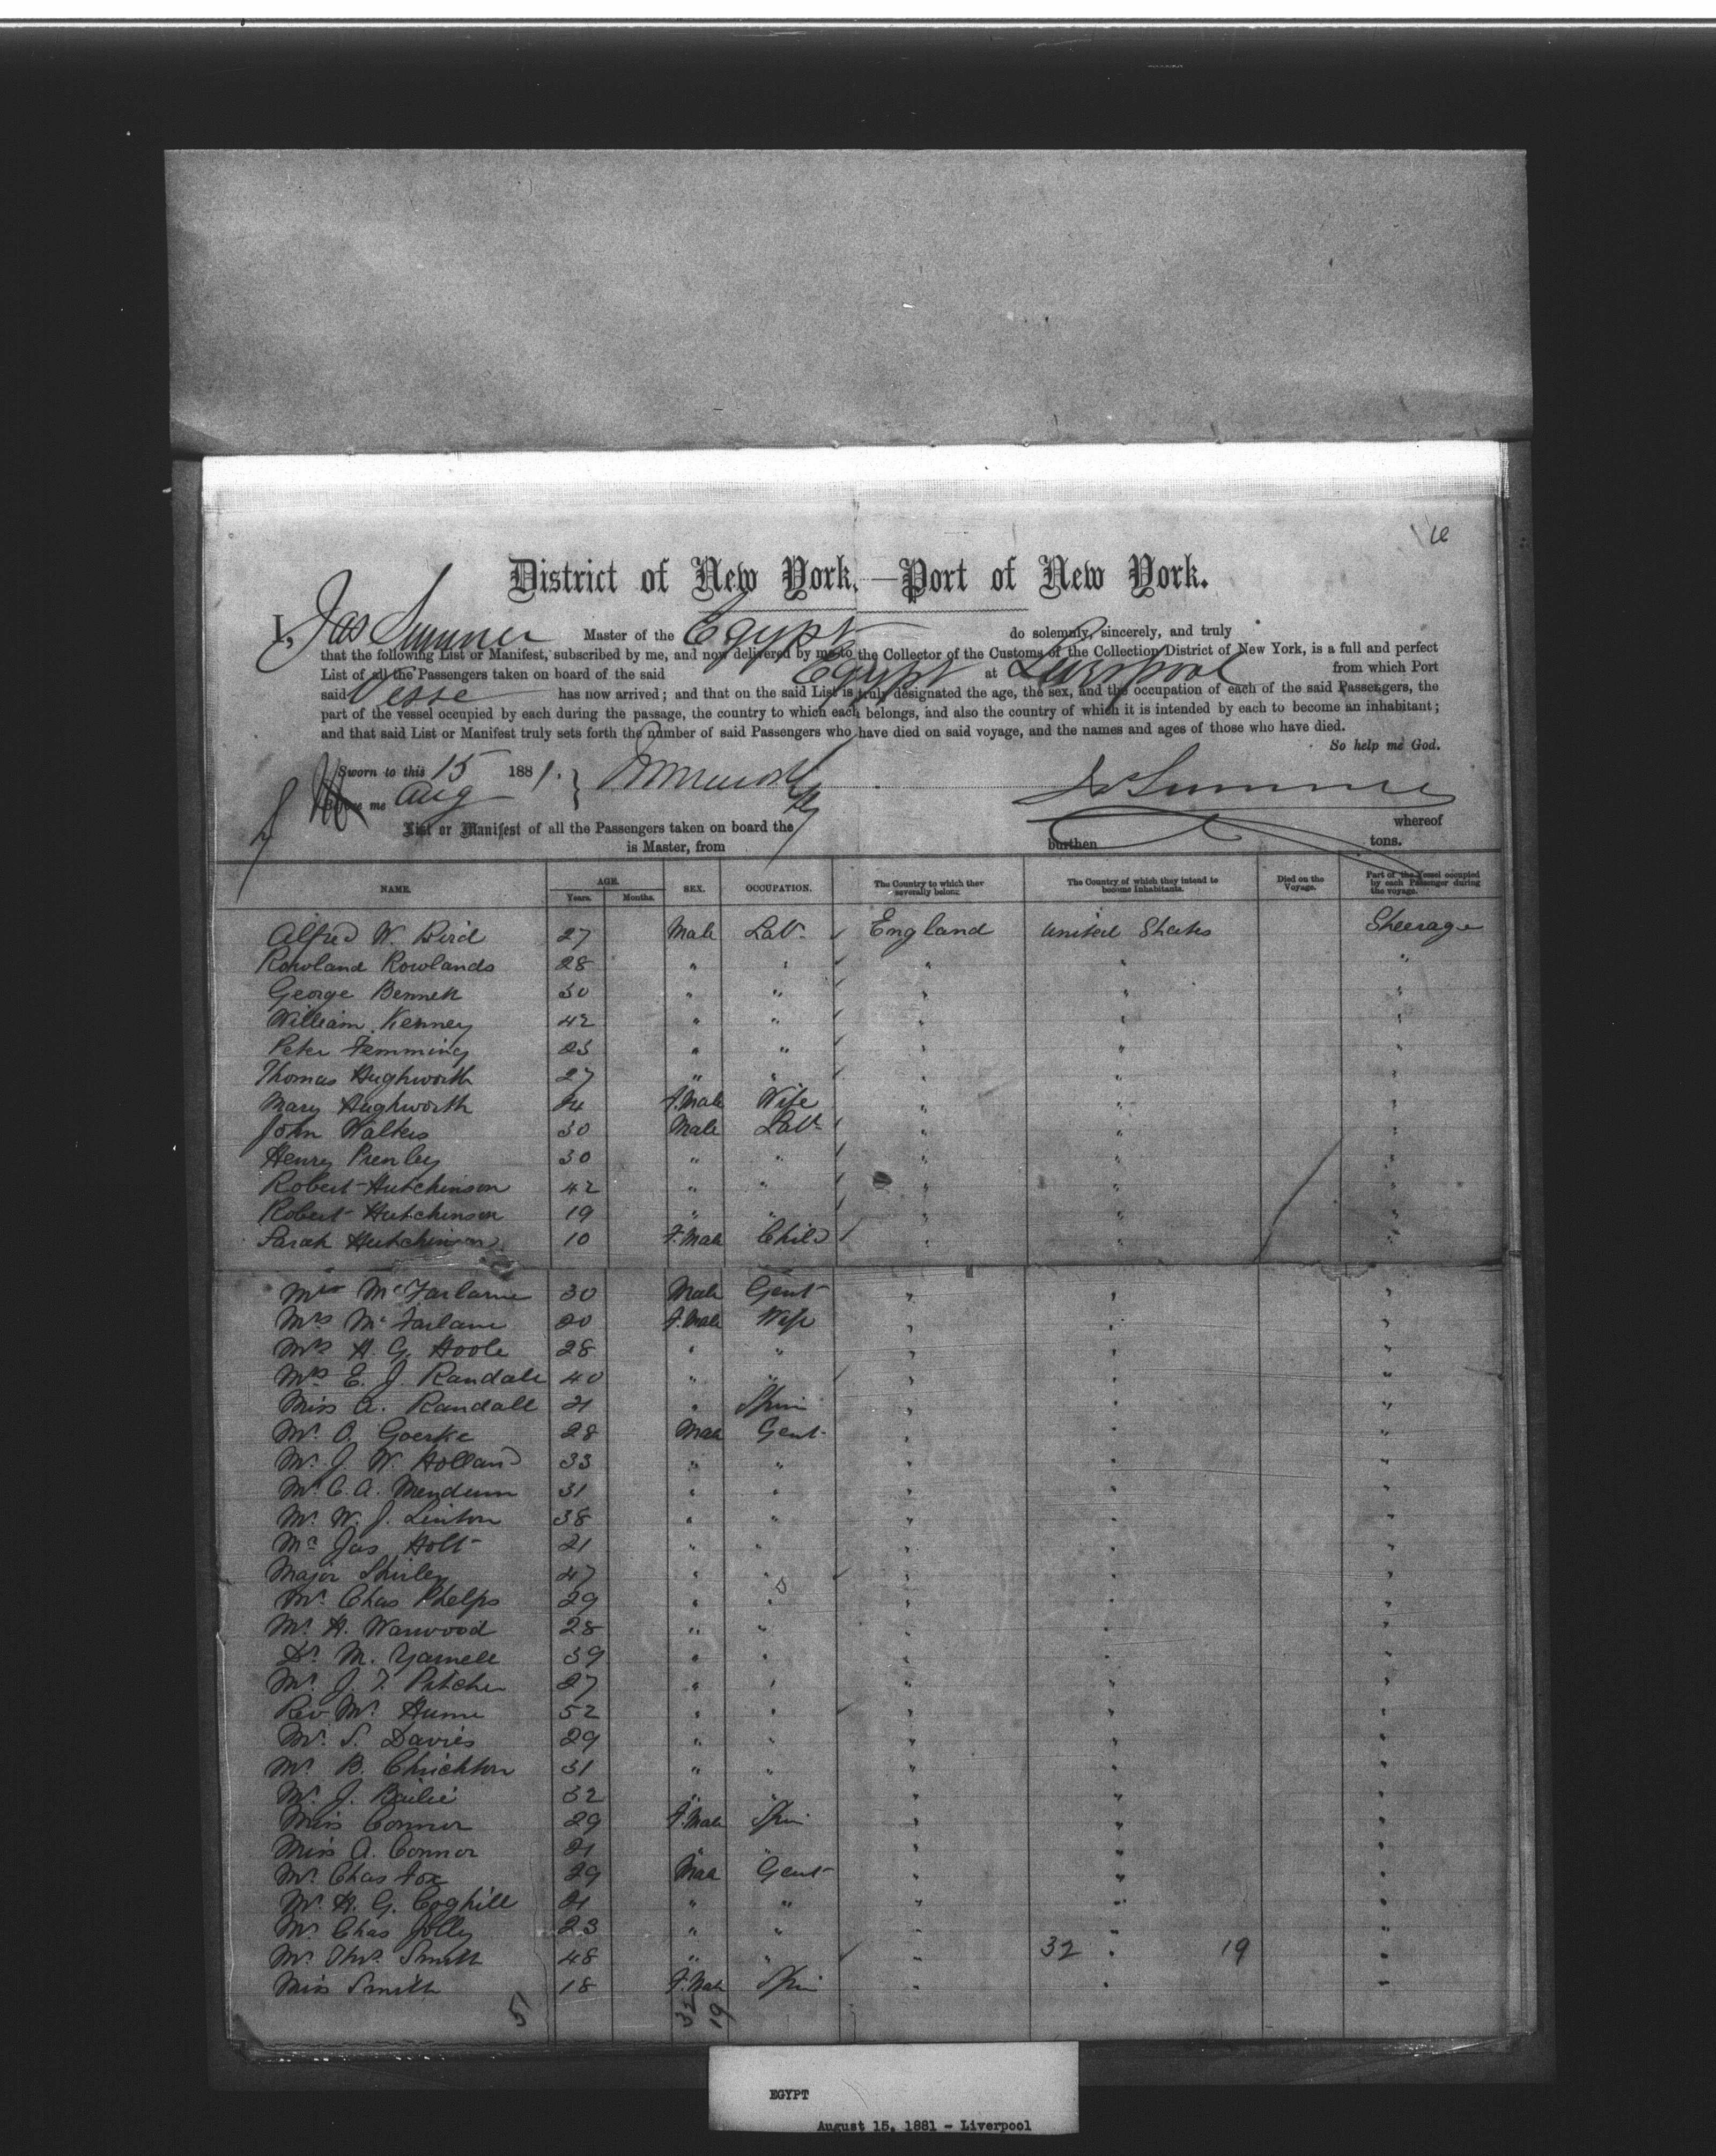 District of New York,—Port of New York.
I, Jas Sumner Master of the Egypt do solemnly, sincerely, and truly
that the following List or Manifest, subscribed by me, and now delivered by me to the Collector of the Customs of the Collection District of New York, is a full and perfect
List of all the Passengers taken on board of the said Egypt at Liverpool from which Port
said Vesse has now arrived; and that on the said List is truly designated the age, the sex, and the occupation of each of the said Passengers, the
part of the vessel occupied by each during the passage, the country to which each belongs, and also the country of which it is intended by each to become an inhabitant;
and that said List or Manifest truly sets forth the number of said Passengers who have died on said voyage, and the names and ages of those who have died.
So help me God.
Sworn to this 15 1881.
Before me Aug
List or Manifest of all the Passengers taken on board the whereof
is Master, from burthen tons.
NAME. AGE. Years. Months. SEX. OCCUPATION. The Country to which they severally belong. The Country of which they intend to become Inhabitants. Died on the Voyage. Part of the Vessel occupied by each Passenger during the voyage.
Alfred W. Bird 27 Male Labr England United States Steerage
Rowland Rowlands 28 " " " " "
George Bennett 30 " " " " "
William Kenney 42 " " " " "
Peter Flemming 23 " " " " "
Thomas Hughworth 27 " " " " "
Mary Hughworth 24 F.Male Wife " " "
John Walters 30 Male Labr " " "
Henry 30 " " " " "
Robert Hutchinson 42 " " " " "
Robert Hutchinson 19 " " " " "
Sarah Hutchinson 10 F.Male Child " " "
McFarlane 30 Male Gent " " "
Mrs McFarlane 20 F.Male Wife " " "
Mrs H. G. Hoole 28 " " " " "
Mrs E. J. Randall 40 " " " " "
Miss A. Randall 21 " Spin " " "
Mr O. Goerke 28 Male Gent " " "
Mr J. W. Holland 33 " " " " "
Mr C. A. Mendum 31 " " " " "
Mr W. J. Linton 38 " " " " "
Mr Jas Holt 21 " " " " "
Major Shirley 47 " " " " "
Mr Chas Phelps 29 " " " " "
Mr H. Warwood 28 " " " " "
Dr M. Yarnell 39 " " " " "
Mr J. T. Pitcher 27 " " " " "
Rev Mr Hume 52 " " " " "
Mr S. Davies 29 " " " " "
Mr B. Chrichton 31 " " " " "
Mr J. Bailie 32 " " " " "
Miss Connor 29 F.Male Spin " " "
Miss A. Connor 21 " " " " "
Mr Chas Fox 29 Male Gent " " "
Mr H. G. Coghill 21 " " " " "
Mr Chas Jolly 23 " " " " "
Mr Thos Smith 48 " " " 32 " 19 "
Miss Smith 18 F.Male Spin " " "
51 32 19
EGYPT
August 15, 1881 - Liverpool